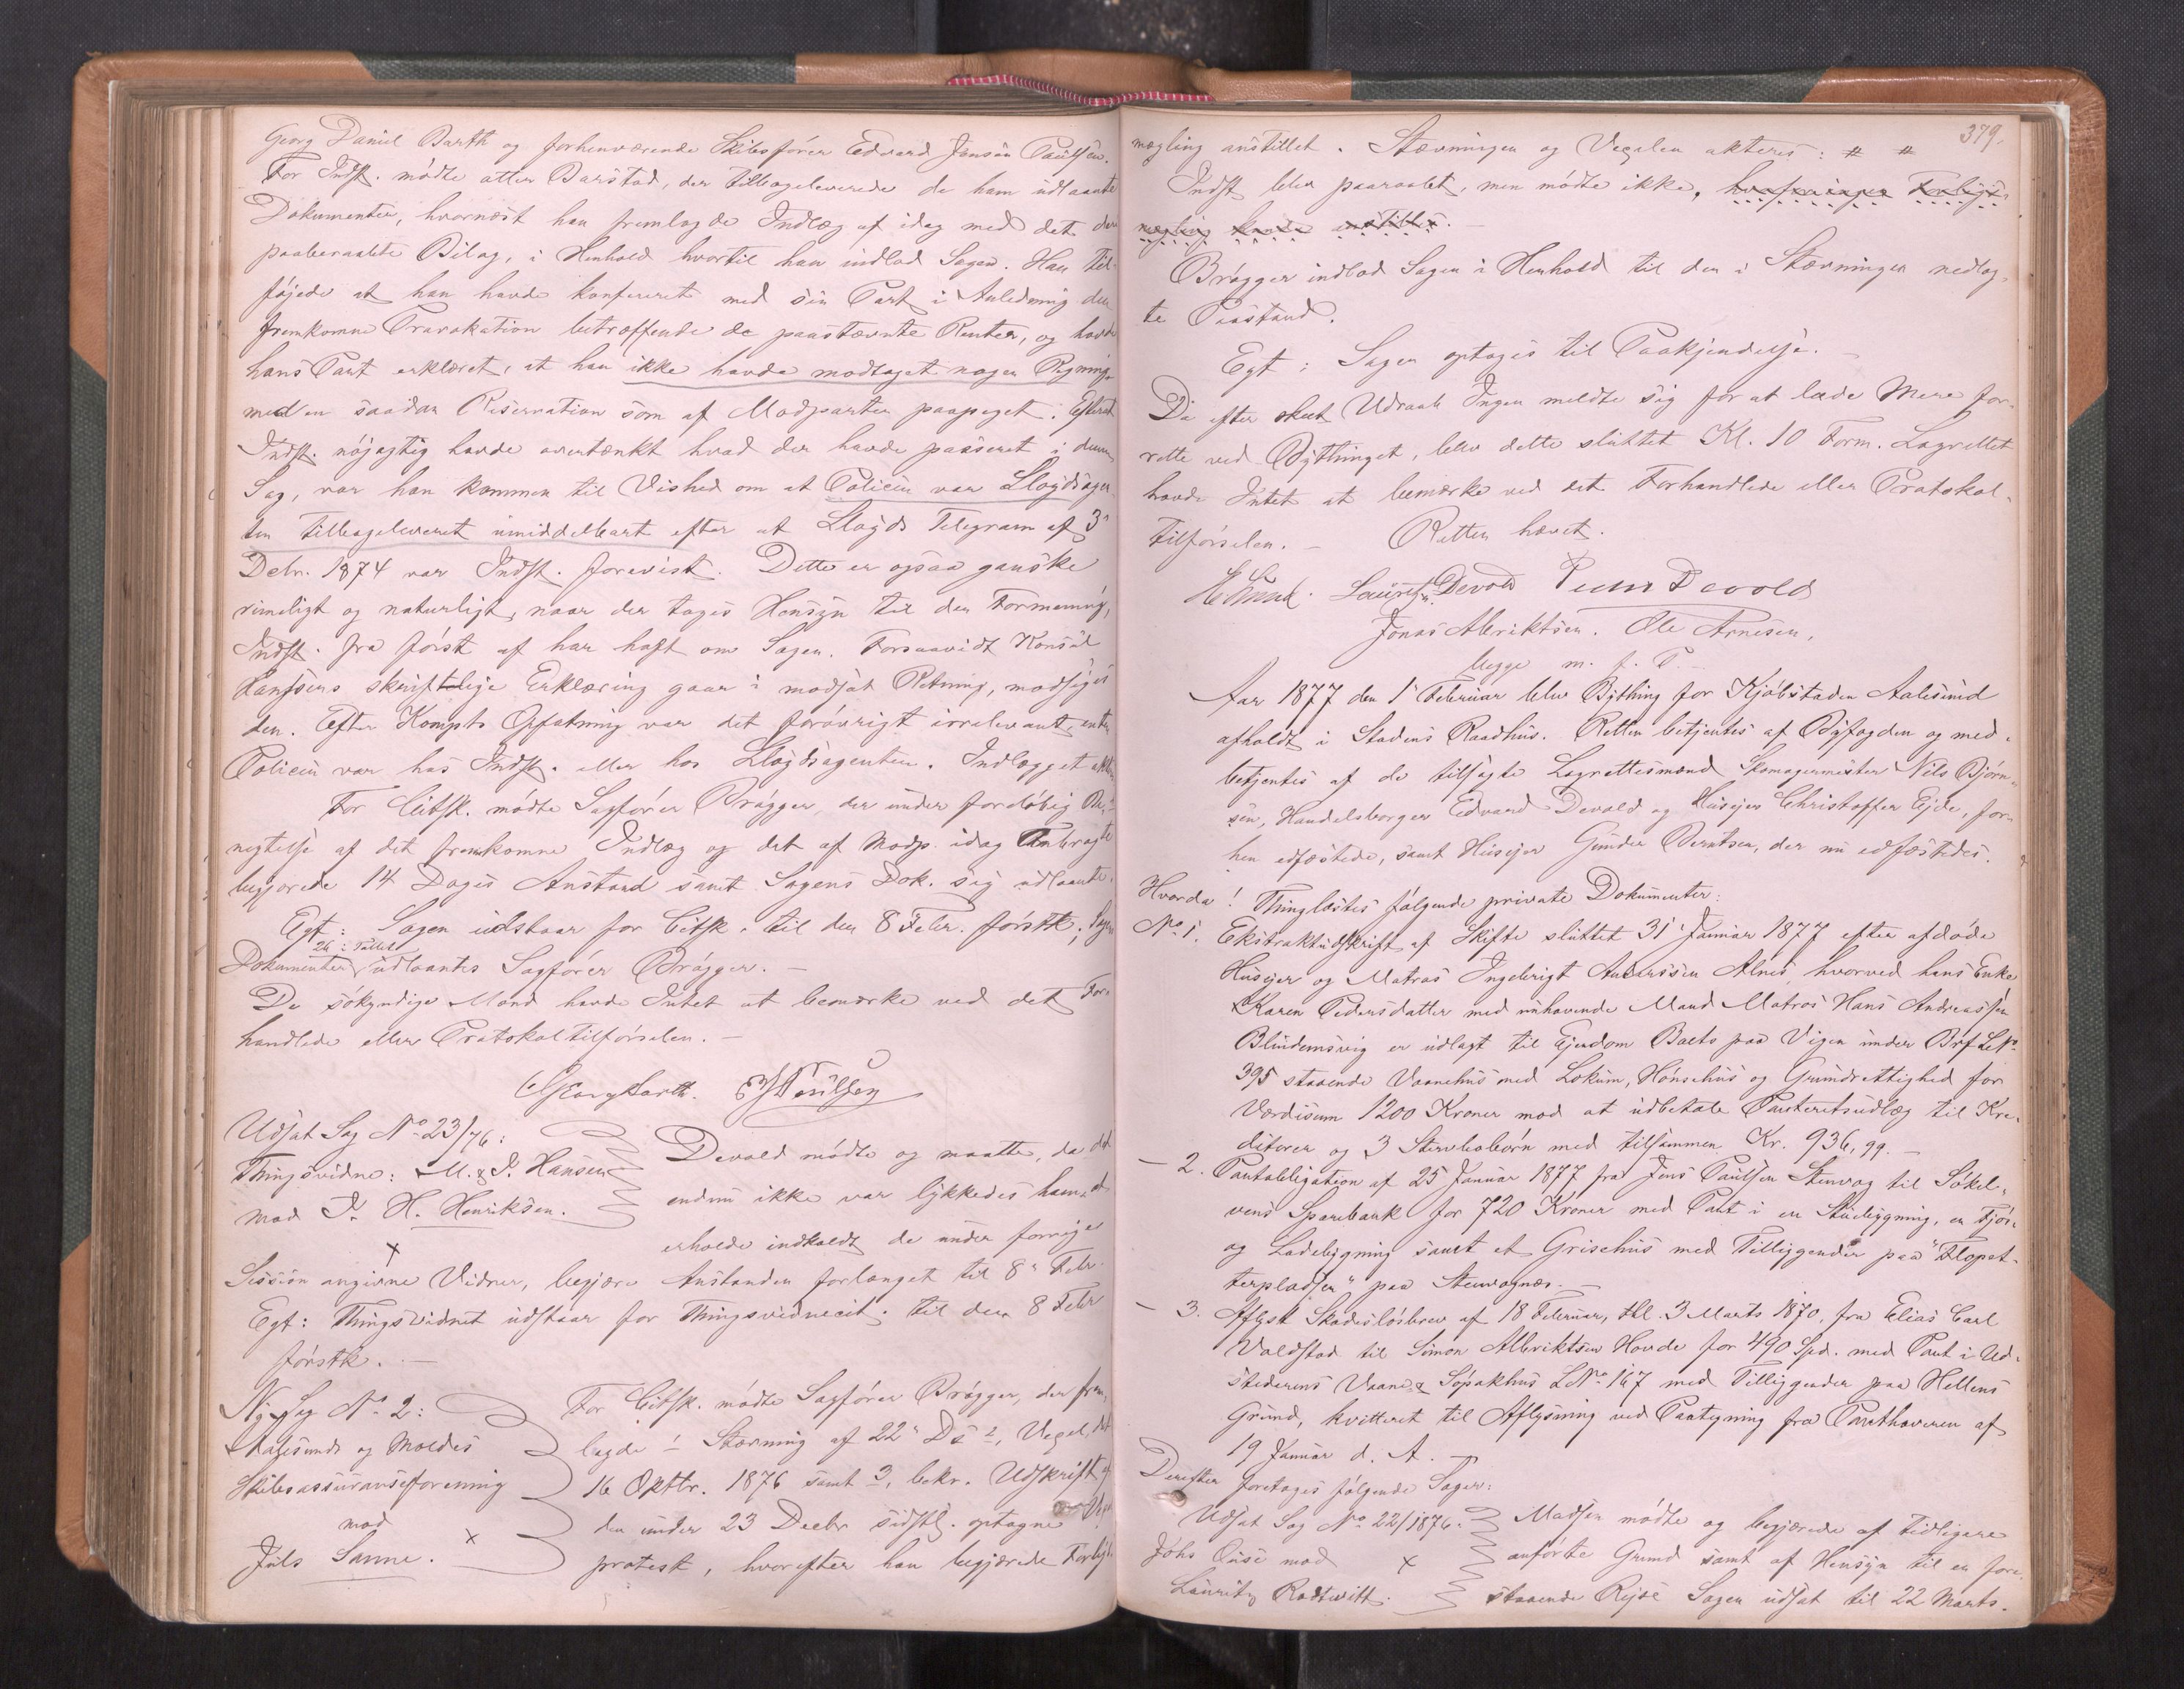 Georg Daniel Barth og forhenværende Skibsfører Edvard Jensen Paulsen.
For Indst. mødte atter Barstad, der tilbageleverede de ham udlaante
Dokumenter, hvornæst han fremlagde Indlæg af idag med det der
paaberaabte Bilag, i Henhold hvortil han indlod Sagen. Han til-
føjede at han havde konfereret med sin Part i Anledning den
fremkomne Provokation betræffende de paastævnte Renter, og havde
hans Part erklæret, at han ikke havde modtaget nogen Regning
med en saadan Reservation som af Modparten paapeget. Efterat
Indst. nøjagtig havde overtænkt hvad der havde passeret i denne
Sag, var han kommen til Vished om at Policen var Lloydsagen-
ten tilbageleveret umiddelbart efter at Lloyds Telegram af 3'
Debr. 1874 var Indst. forevist. Dette er ogsaa ganske
rimeligt og naturligt, naar der tages Hensyn til den Formening,
Indst. fra først af har haft om Sagen. Forsaavidt Konsul
Hanssens skriftelige Erklæring gaar i modsat Retning, modsiges
den. Efter Kompts Opfatning var det forøvrigt irrelevant, enten
Policen var hos Indst. eller hos Lloydsagenten. Indlægget akt
For Citsk. mødte Sagfører Brøgger, der under foreløbig Be-
negtelse af det fremkomne Indlæg og det af Modp. idag Anbragte
begjærede 14 Dages Anstand samt Sagens Dok. sig udlaante.
Egt: Sagen udstaar for Citsk. til den 8 Febr. førstk; Sagens
Dokumenter udlaantes Sagfører Brøgger. –
26 i Tallet
De søkyndige Mænd havde Intet at bemærke ved det For-
handlede eller Protokoltilførselen. –
Georg Barth. E J Poulsen
Udsat Sag No 23/76:
Thingsvidne: M. & P. Hansen
mod P. H. Henriksen.
Devold mødte og maatte, da det
endnu ikke var lykkedes ham at
erholde indkaldt de under forrige
Session angivne Vidner, begjære Anstanden forlænget til 8' Febr.
Egt: Thingsvidnet udstaar for Thingsvidnecit. til den 8 Febr
førstk. –
Ny Sag No 2:
Aalesunds og Moldes
Skibsassuranceforening
mod
Juls Sanne.
For Citsk. mødte Sagfører Brøgger, der frem-
lagde 1 Stævning af 22' Ds 2, Vexel, dat
16 Oktbr. 1876 samt 3, bekr. Udskrift af
den under 23 Decbr sidstl. optagne Vexel
protest, hvorefter han begjærede Forligs-
379.
mægling anstillet. Stævningen og Vexelen akteres: # #
Indst blev paaraabt, men mødte ikke, hvorfor ingen Forligs
mægling kunde anstilles. –
Brøgger indlod Sagen i Henhold til den i Stævningen nedlag-
te Paastand.
Egt: Sagen optages til Paakjendelse. –
Da efter skeet Udraab Ingen meldte sig for at lade Mere for-
rette ved Bythinget, blev dette sluttet Kl. 10 Form. Lagrettet
havde Intet at bemærke ved det Forhandlede eller Protokol-
tilførselen. – Retten hævet.
Lauritz Devold Peter Devold
Jonas Albriktsen. Ole Arnesen,
begge m. f. P.
Aar 1877 den 1' Februar blev Bything for Kjøbstaden Aalesund
afholdt i Stadens Raadhus. Retten betjentes af Byfogden og med-
betjentes af de tilsagte Lagrettesmænd Skomagermester Nils Bjørn-
sen, Handelsborger Edvard Devold og Husejer Christoffer Ejde, for-
hen edfæstede, samt Husejer Gunder Berntsen, der nu edfæstedes.
Hvorda! Thinglæstes følgende private Dokumenter:
No 1. Ekstraktudskrift af Skifte sluttet 31' Januar 1877 efter afdøde
Husejer og Matros Ingebrigt Andersen Alnes, hvorved hans Enke
Karen Pedersdatter med nuhavende Mand Matros Hans Andreassen
Blindemsvig er udlagt til Ejendom Boets paa Vigen under Brf L No
395 staaende Vaanehus med Lokum, Hønsehus og Grundrettighed for
Værdisum 1200 Kroner mod at udbetale Panteretsudlæg til Kre-
ditorer og 3 Stervbobørn med tilsammen Kr. 936,99. –
– 2. Pantobligation af 25 Januar 1877 fra Jens Paulsen Stenvog til Søkel-
vens Sparebank for 720 Kroner med Pant i en Stuebygning, en Fjøs-
og Ladebygning samt et Grisehus med Tilliggender paa "Flopat-
terpladsen" paa Stenvognæs. –
– 3. Aflyst Skadesløsbrev af 18 Februar, thl. 3 Marts 1870, fra Elias Carl
Valdstad til Simon Albriktsen Hovde for 490 Spd. med Pant i Ud-
stederens Vaane- & Søpakhus L No 167 med Tilliggender paa Hellens
Grund, kvitteret til Aflysning ved Paategning fra Panthaveren af
19 Januar d. A. –
Derefter foretages følgende Sager:
Udsat Sag No 22/1876.
Johs Quse mod
Lauritz Rødtwitt.
Madsen mødte og begjærede af tidligere
anførte Grund samt af Hensyn til en fore-
staaende Rejse Sagen udsat til 22 Marts.